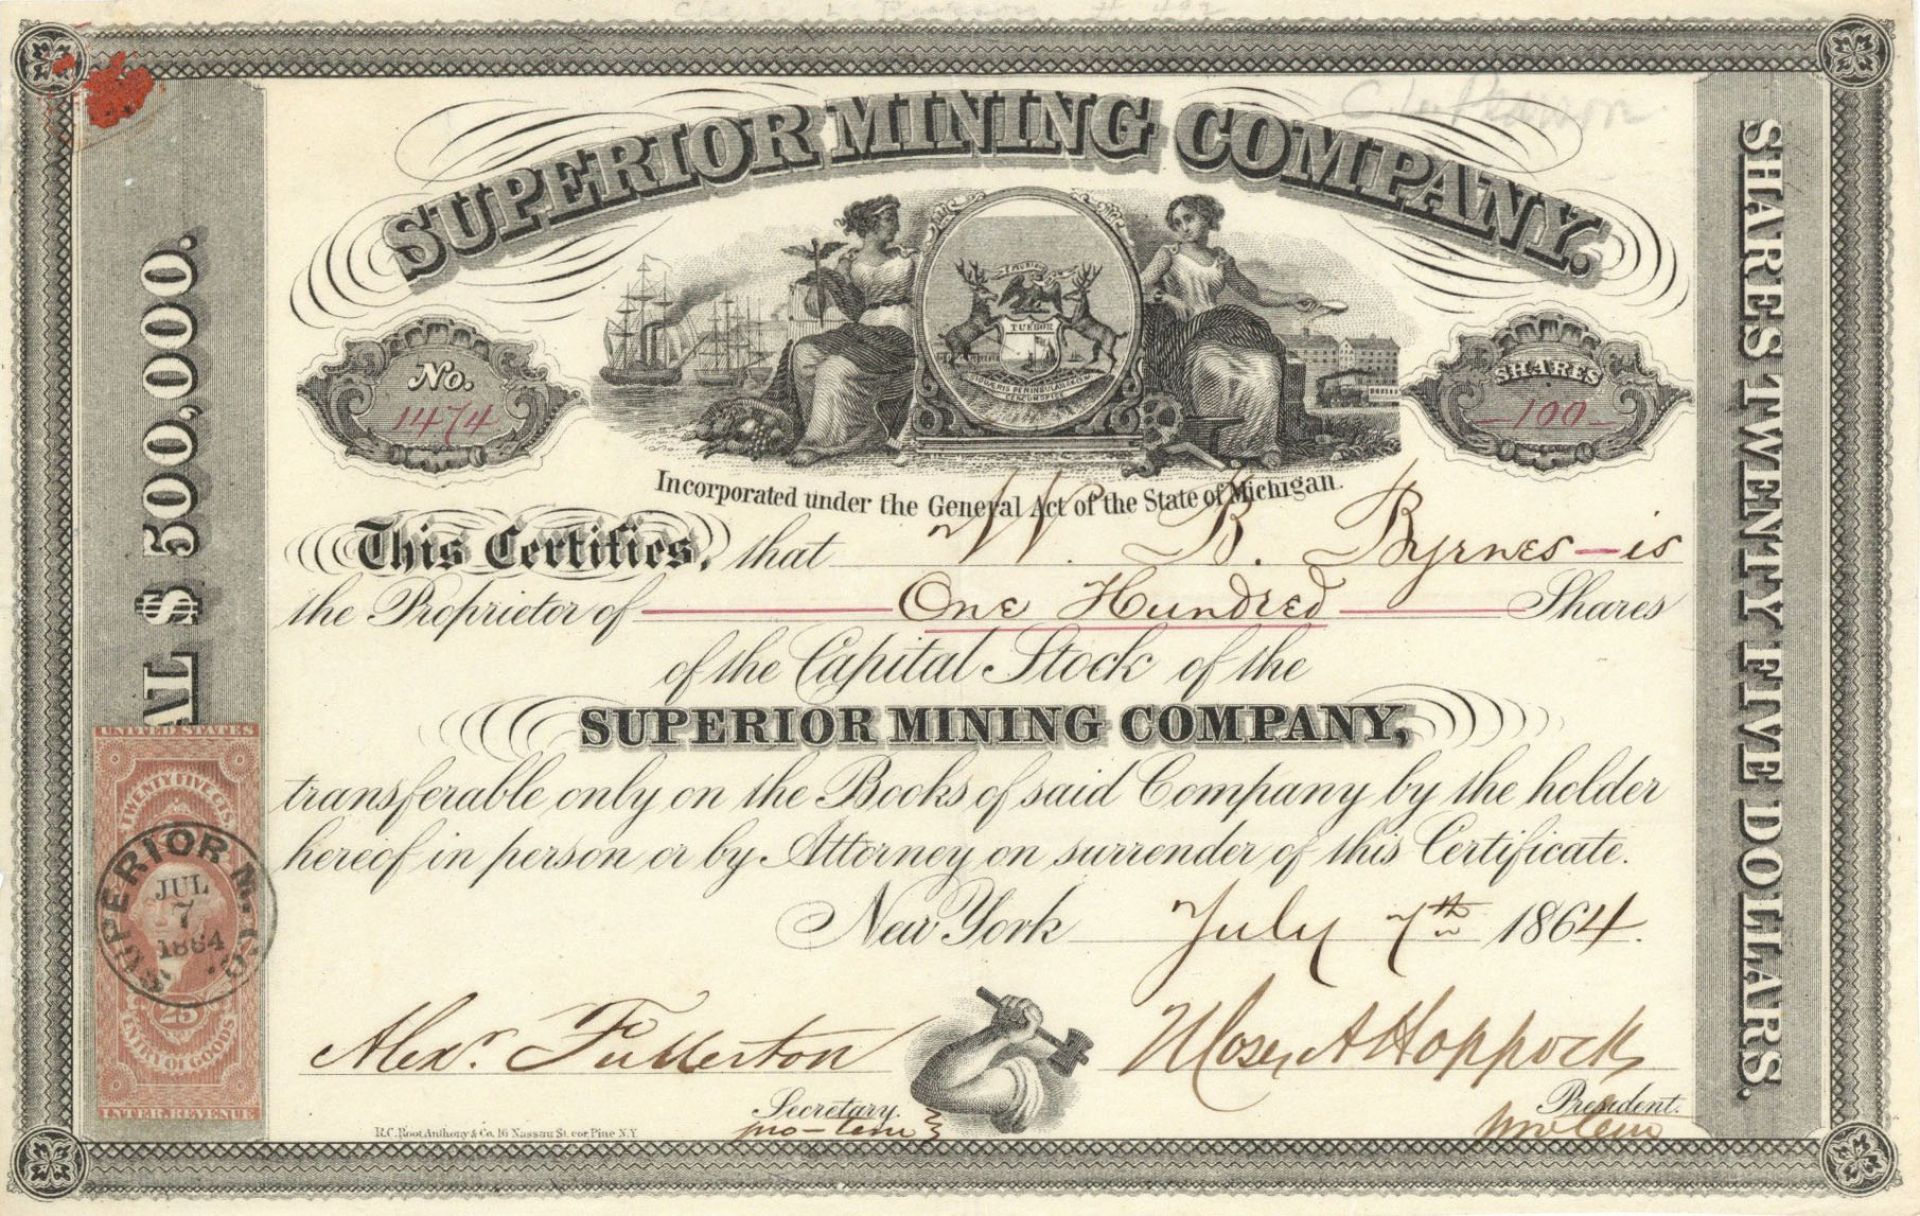 SUPERIOR MINING COMPANY.
No.
1474
TUEBOR
SHARES
100
Incorporated under the General Act of the State of Michigan.
This Certifies, that W. B. Byrnes is
the Proprietor of One Hundred Shares
of the Capital Stock of the
SUPERIOR MINING COMPANY,
transferable only on the Books of said Company by the holder
hereof in person or by Attorney on surrender of this Certificate.
New York July 7th 1864.
Alexr. Fullerton
Moses A Hoppock
Secretary.
pro-tem
President.
pro tem
R.C. Root, Anthony & Co. 16 Nassau St. cor Pine N.Y.
AL $ 500,000.
SHARES TWENTY FIVE DOLLARS.
UNITED STATES
TWENTY FIVE CTS.
SUPERIOR M. CO.
JUL
7
1864
25
ENTRY OF GOODS
INTER. REVENUE